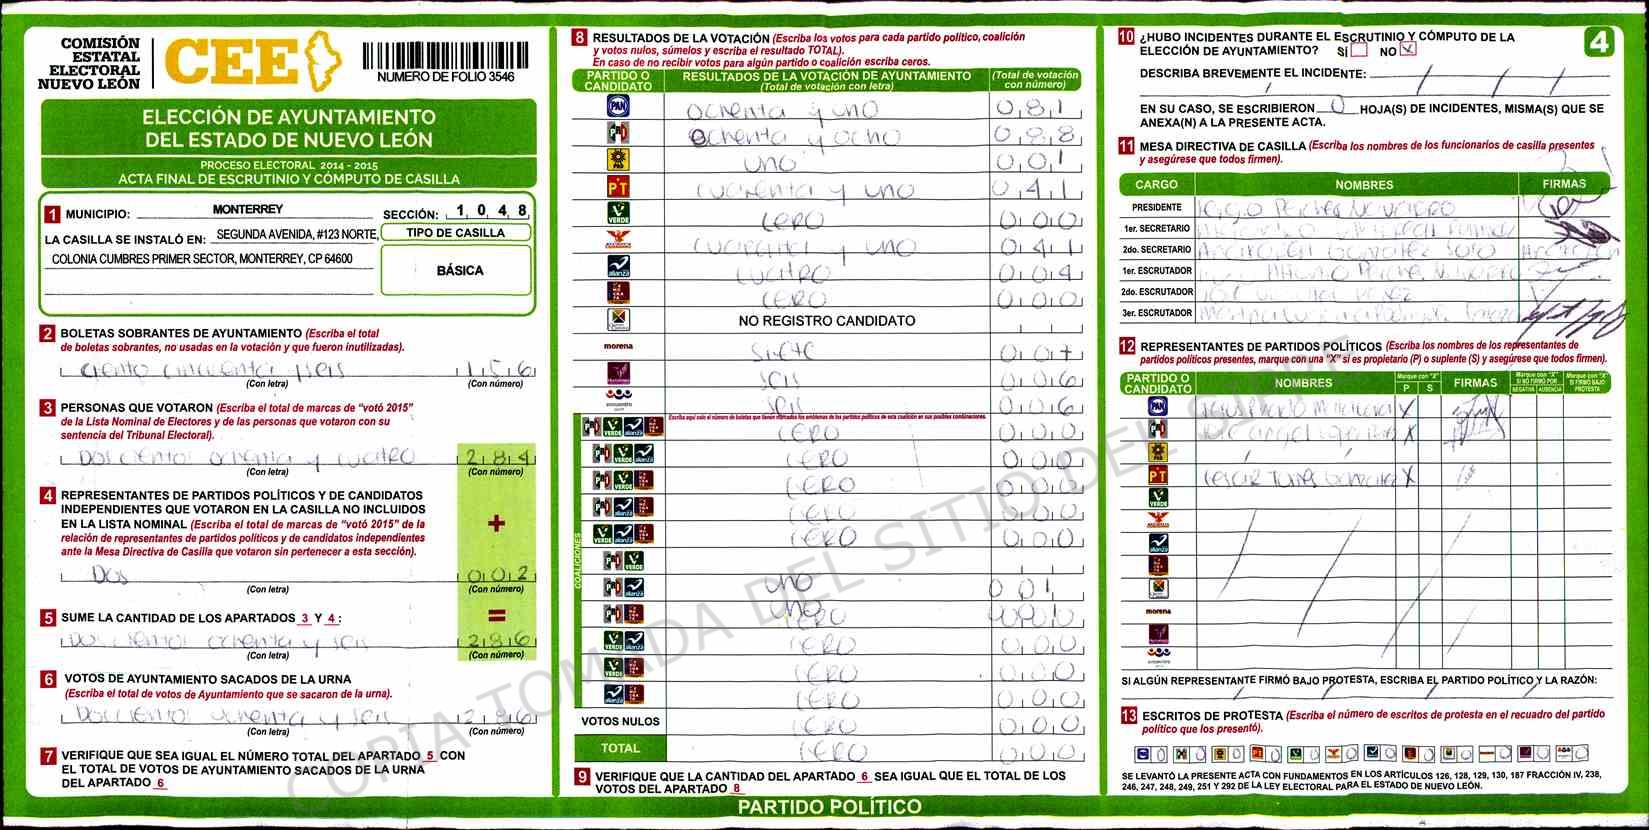 COMISIÓN
ESTATAL
ELECTORAL
NUEVO LEÓN
CEE
NUMERO DE FOLIO 3546
ELECCIÓN DE AYUNTAMIENTO
DEL ESTADO DE NUEVO LEÓN
PROCESO ELECTORAL 2014 - 2015
ACTA FINAL DE ESCRUTINIO Y CÓMPUTO DE CASILLA
1 MUNICIPIO: MONTERREY SECCIÓN: 1 0 4 8
LA CASILLA SE INSTALÓ EN: SEGUNDA AVENIDA, #123 NORTE,
COLONIA CUMBRES PRIMER SECTOR, MONTERREY, CP 64600
TIPO DE CASILLA
BÁSICA
2 BOLETAS SOBRANTES DE AYUNTAMIENTO (Escriba el total
de boletas sobrantes, no usadas en la votación y que fueron inutilizadas).
ciento cincuenta y seis 1 5 6
(Con letra) (Con número)
3 PERSONAS QUE VOTARON (Escriba el total de marcas de "votó 2015"
de la Lista Nominal de Electores y de las personas que votaron con su
sentencia del Tribunal Electoral).
Doscientos ochenta y cuatro 2 8 4
(Con letra) (Con número)
4 REPRESENTANTES DE PARTIDOS POLÍTICOS Y DE CANDIDATOS
INDEPENDIENTES QUE VOTARON EN LA CASILLA NO INCLUIDOS
EN LA LISTA NOMINAL (Escriba el total de marcas de "votó 2015" de la
relación de representantes de partidos políticos y de candidatos independientes
ante la Mesa Directiva de Casilla que votaron sin pertenecer a esta sección).
+
Dos 0 0 2
(Con letra) (Con número)
5 SUME LA CANTIDAD DE LOS APARTADOS 3 Y 4 : =
Doscientos ochenta y seis 2 8 6
(Con letra) (Con número)
6 VOTOS DE AYUNTAMIENTO SACADOS DE LA URNA
(Escriba el total de votos de Ayuntamiento que se sacaron de la urna).
Doscientos ochenta y seis 2 8 6
(Con letra) (Con número)
7 VERIFIQUE QUE SEA IGUAL EL NÚMERO TOTAL DEL APARTADO 5 CON
EL TOTAL DE VOTOS DE AYUNTAMIENTO SACADOS DE LA URNA
DEL APARTADO 6
8 RESULTADOS DE LA VOTACIÓN (Escriba los votos para cada partido político, coalición
y votos nulos, súmelos y escriba el resultado TOTAL).
En caso de no recibir votos para algún partido o coalición escriba ceros.
PARTIDO O CANDIDATO RESULTADOS DE LA VOTACIÓN DE AYUNTAMIENTO (Total de votación con letra) (Total de votación con número)
PAN ochenta y uno 0 8 1
PRI ochenta y ocho 0 8 8
PRD uno 0 0 1
PT cuarenta y uno 0 4 1
VERDE CERO 0 0 0
cuarenta y uno 0 4 1
alianza cuatro 0 0 4
CERO 0 0 0
NO REGISTRO CANDIDATO
morena siete 0 0 7
seis 0 0 6
encuentro seis 0 0 6
COALICIONES
Escriba aquí solo el número de boletas que tienen marcados los emblemas de los partidos políticos de esta coalición en sus posibles combinaciones.
PRI VERDE alianza CERO 0 0 0
PRI VERDE alianza CERO 0 0 0
PRI VERDE CERO 0 0 0
PRI alianza CERO 0 0 0
VERDE alianza CERO 0 0 0
PRI VERDE
PRI alianza uno 0 0 1
PRI uno
CERO
VERDE alianza CERO 0 0 0
VERDE CERO 0 0 0
alianza CERO 0 0 0
VOTOS NULOS CERO 0 0 0
TOTAL CERO 0 0 0
9 VERIFIQUE QUE LA CANTIDAD DEL APARTADO 6 SEA IGUAL QUE EL TOTAL DE LOS
VOTOS DEL APARTADO 8
PARTIDO POLÍTICO
10 ¿HUBO INCIDENTES DURANTE EL ESCRUTINIO Y CÓMPUTO DE LA
ELECCIÓN DE AYUNTAMIENTO? SÍ NO X
4
DESCRIBA BREVEMENTE EL INCIDENTE:
EN SU CASO, SE ESCRIBIERON 0 HOJA(S) DE INCIDENTES, MISMA(S) QUE SE
ANEXA(N) A LA PRESENTE ACTA.
11 MESA DIRECTIVA DE CASILLA (Escriba los nombres de los funcionarios de casilla presentes
y asegúrese que todos firmen).
CARGO NOMBRES FIRMAS
PRESIDENTE
1er. SECRETARIO
2do. SECRETARIO
1er. ESCRUTADOR
2do. ESCRUTADOR
3er. ESCRUTADOR
12 REPRESENTANTES DE PARTIDOS POLÍTICOS (Escriba los nombres de los representantes de
partidos políticos presentes, marque con una "X" si es propietario (P) o suplente (S) y asegúrese que todos firmen).
PARTIDO O CANDIDATO NOMBRES Marque con "X" P S FIRMAS Marque con "X" SI NO FIRMÓ POR NEGATIVA AUSENCIA Marque con "X" SI FIRMÓ BAJO PROTESTA
PAN X
PRI X
PRD
PT X
VERDE
alianza
morena
encuentro
SI ALGÚN REPRESENTANTE FIRMÓ BAJO PROTESTA, ESCRIBA EL PARTIDO POLÍTICO Y LA RAZÓN:
13 ESCRITOS DE PROTESTA (Escriba el número de escritos de protesta en el recuadro del partido
político que los presentó).
0 0 0 0 0 0 0 0 0 0 0 0
SE LEVANTÓ LA PRESENTE ACTA CON FUNDAMENTOS EN LOS ARTÍCULOS 126, 128, 129, 130, 187 FRACCIÓN IV, 238,
246, 247, 248, 249, 251 Y 292 DE LA LEY ELECTORAL PARA EL ESTADO DE NUEVO LEÓN.
COPIA TOMADA DEL SITIO DEL SIPRE